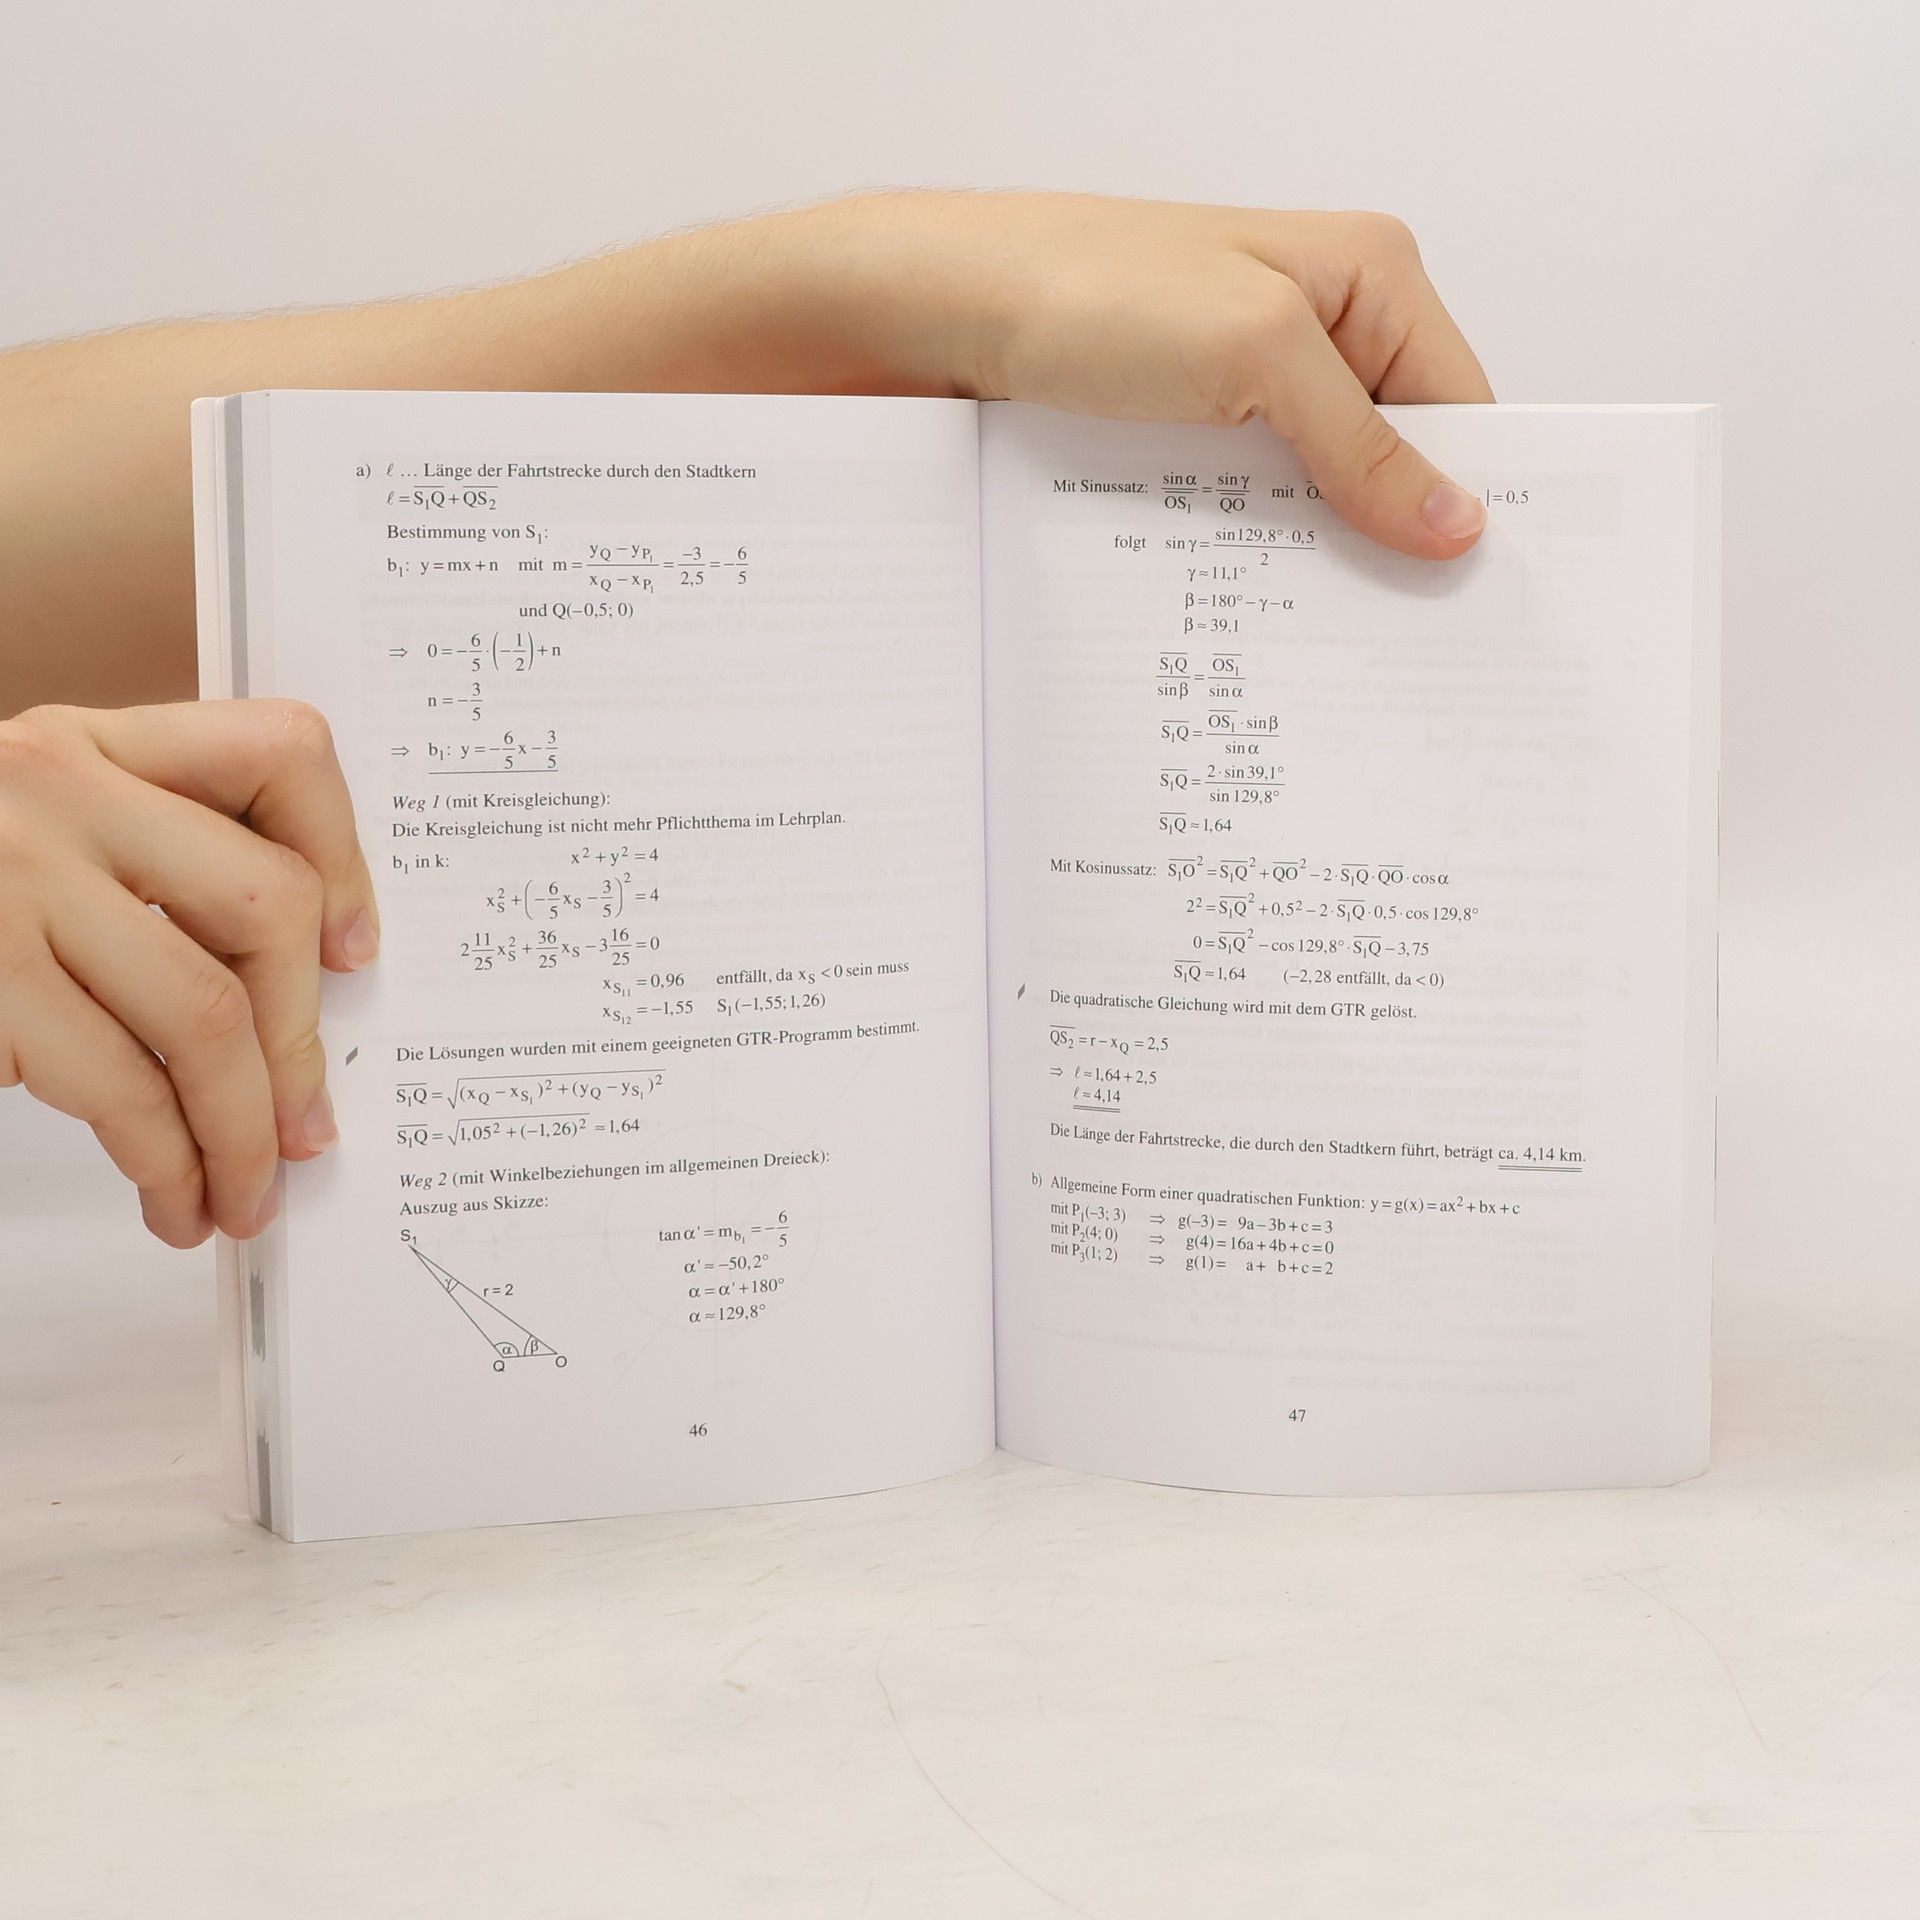 a) ℓ … Länge der Fahrtstrecke durch den Stadtkern
ℓ = S₁Q + QS₂
Bestimmung von S₁:
b₁: y = mx + n mit m = (y_Q − y_P₁)/(x_Q − x_P₁) = −3/2,5 = −6/5
und Q(−0,5; 0)
⇒ 0 = −6/5 · (−1/2) + n
n = −3/5
⇒ b₁: y = −6/5 x − 3/5
Weg 1 (mit Kreisgleichung):
Die Kreisgleichung ist nicht mehr Pflichtthema im Lehrplan.
b₁ in k: x² + y² = 4
x_S² + (−6/5 x_S − 3/5)² = 4
2 11/25 x_S² + 36/25 x_S − 3 16/25 = 0
x_S₁₁ = 0,96 entfällt, da x_S < 0 sein muss
x_S₁₂ = −1,55 S₁(−1,55; 1,26)
Die Lösungen wurden mit einem geeigneten GTR-Programm bestimmt.
S₁Q = √((x_Q − x_S₁)² + (y_Q − y_S₁)²)
S₁Q = √(1,05² + (−1,26)²) ≈ 1,64
Weg 2 (mit Winkelbeziehungen im allgemeinen Dreieck):
Auszug aus Skizze:
S₁
γ
r = 2
α β
Q O
tan α' = m_b₁ = −6/5
α' ≈ −50,2°
α = α' + 180°
α ≈ 129,8°
46
Mit Sinussatz: sin α/OS₁ = sin γ/QO mit | = 0,5
folgt sin γ = sin 129,8° · 0,5/2
γ ≈ 11,1°
β = 180° − γ − α
β ≈ 39,1
S₁Q/sin β = OS₁/sin α
S₁Q = OS₁ · sin β/sin α
S₁Q = 2 · sin 39,1°/sin 129,8°
S₁Q ≈ 1,64
Mit Kosinussatz: S₁O² = S₁Q² + QO² − 2 · S₁Q · QO · cos α
2² = S₁Q² + 0,5² − 2 · S₁Q · 0,5 · cos 129,8°
0 = S₁Q² − cos 129,8° · S₁Q − 3,75
S₁Q ≈ 1,64 (−2,28 entfällt, da < 0)
Die quadratische Gleichung wird mit dem GTR gelöst.
QS₂ = r − x_Q = 2,5
⇒ ℓ ≈ 1,64 + 2,5
ℓ ≈ 4,14
Die Länge der Fahrtstrecke, die durch den Stadtkern führt, beträgt ca. 4,14 km.
b) Allgemeine Form einer quadratischen Funktion: y = g(x) = ax² + bx + c
mit P₁(−3; 3) ⇒ g(−3) = 9a − 3b + c = 3
mit P₂(4; 0) ⇒ g(4) = 16a + 4b + c = 0
mit P₃(1; 2) ⇒ g(1) = a + b + c = 2
47